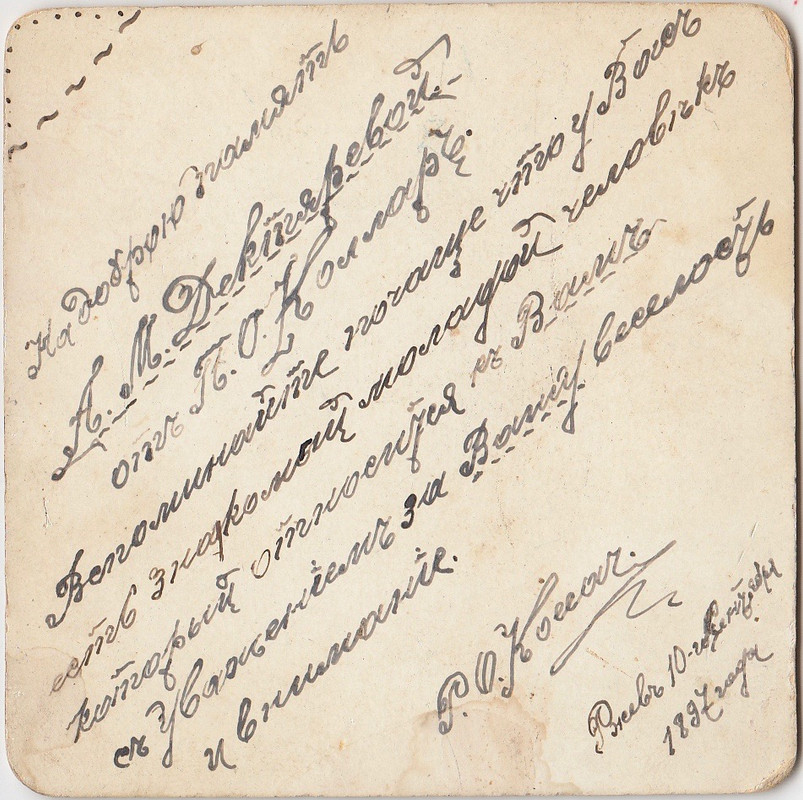 На добрую память
А. М. Дектяревой.
отъ П. О. Колларъ.
Вспоминайте почаще что у Васъ
есть знакомый молодой человѣкъ
который относится къ Вамъ
съ уваженіемъ за Вашу веселость
и вниманіе.
Р. О.
Ржевъ 10-го Сентября
1897 года